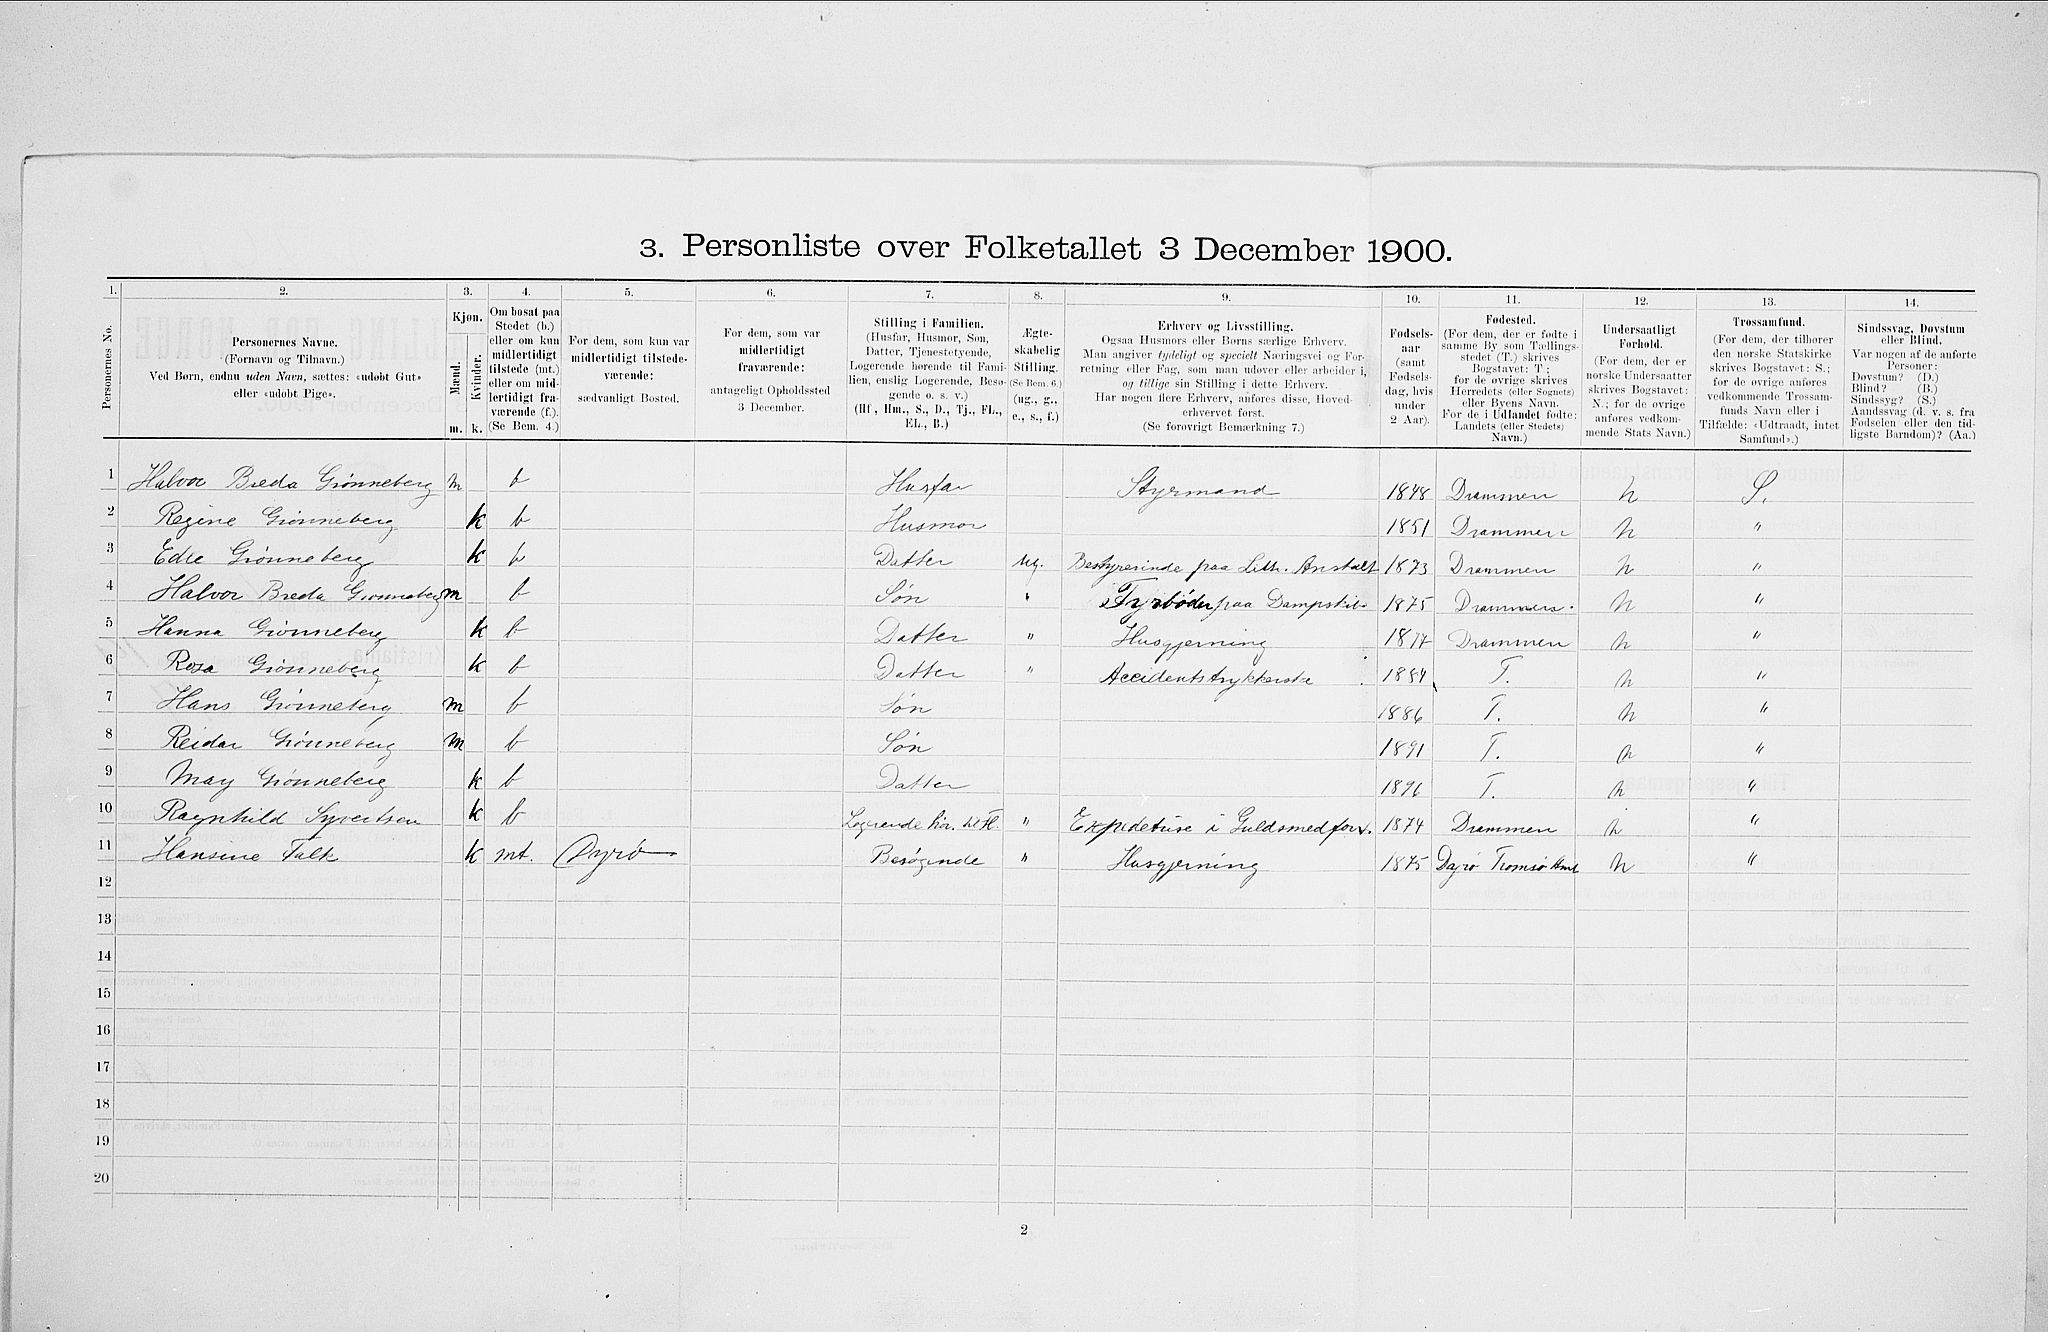 3. Personliste over Folketallet 3 December 1900.
1. 2. 3. 4. 5. 6. 7. 8. 9. 10. 11. 12. 13. 14.
Personernes No.
Personernes Navne.
(Fornavn og Tilnavn.)
Ved Børn, endnu uden Navn, sættes: «udøbt Gut»
eller «udøbt Pige».
Kjøn.
Mænd. Kvinder.
m. k.
Om bosat paa
Stedet (b.)
eller om kun
midlertidigt
tilstede (mt.)
eller om mid-
lertidigt fra-
værende (f.).
(Se Bem. 4.)
For dem, som kun var
midlertidigt tilstede-
værende:
sædvanligt Bosted.
For dem, som var
midlertidigt
fraværende:
antageligt Opholdssted
3 December.
Stilling i Familien.
(Husfar, Husmor, Søn,
Datter, Tjenestetyende,
Logerende hørende til Fami-
lien, enslig Logerende, Besø-
gende o. s. v.)
(Hf, Hm., S., D., Tj., FL.,
EL., B.)
Ægte-
skabelig
Stilling.
(Se Bem. 6.)
(ug., g.,
e., s., f.)
Erhverv og Livsstilling.
Ogsaa Husmors eller Børns særlige Erhverv.
Man angiver tydeligt og specielt Næringsvei og For-
retning eller Fag, som man udøver eller arbeider i,
og tillige sin Stilling i dette Erhverv.
Har nogen flere Erhverv, anføres disse, Hoved-
erhvervet først.
(Se forøvrigt Bemærkning 7.)
Fødsels-
aar
(samt
Fødsels-
dag, hvis
under
2 Aar).
Fødested.
(For dem, der er fødte i
samme By som Tællings-
stedet (T.) skrives
Bogstavet: T;
for de øvrige skrives
Herredets (eller Sognets)
eller Byens Navn.
For de i Udlandet fødte:
Landets (eller Stedets)
Navn.)
Undersaatligt
Forhold.
(For dem, der er
norske Undersaatter
skrives Bogstavet:
N.; for de øvrige
anføres vedkom-
mende Stats Navn.)
Trossamfund.
(For dem, der tilhører
den norske Statskirke
skrives Bogstavet: S.;
for de øvrige anføres
vedkommende Trossam-
funds Navn eller i
Tilfælde: «Udtraadt, intet
Samfund».)
Sindssvag, Døvstum
eller Blind.
Var nogen af de anførte
Personer:
Døvstum? (D.)
Blind? (B.)
Sindssyg? (S.)
Aandssvag (d. v. s. fra
Fødselen eller den tid-
ligste Barndom)? (Aa.)
1 Halvor Breda Grønneberg m b Husfar Styrmand 1848 Drammen N S.
2 Regine Grønneberg k b Husmor 1851 Drammen N "
3 Edle Grønneberg k b Datter ug. Bestyrerinde paa Lith. Anstalt 1873 Drammen N "
4 Halvor Breda Grønneberg m b Søn " Fyrbøder paa Dampskib 1875 Drammen. N "
5 Hanna Grønneberg k b Datter " Husgjerning 1877 Drammen N "
6 Rosa Grønneberg k b Datter " Accidentstrykkerske 1884 T. N "
7 Hans Grønneberg m b Søn 1886 T. N "
8 Reidar Grønneberg m b Søn 1891 T. N "
9 May Grønneberg k b Datter 1896 T. N "
10 Ragnhild Syvertsen k b Logerende hør. til Fl. " Expedetrise i Guldsmedforr. 1874 Drammen N "
11 Hansine Falk k mt. Dyrø Besøgende " Husgjerning 1875 Dyrø Tromsø Amt N "
12
13
14
15
16
17
18
19
20
2